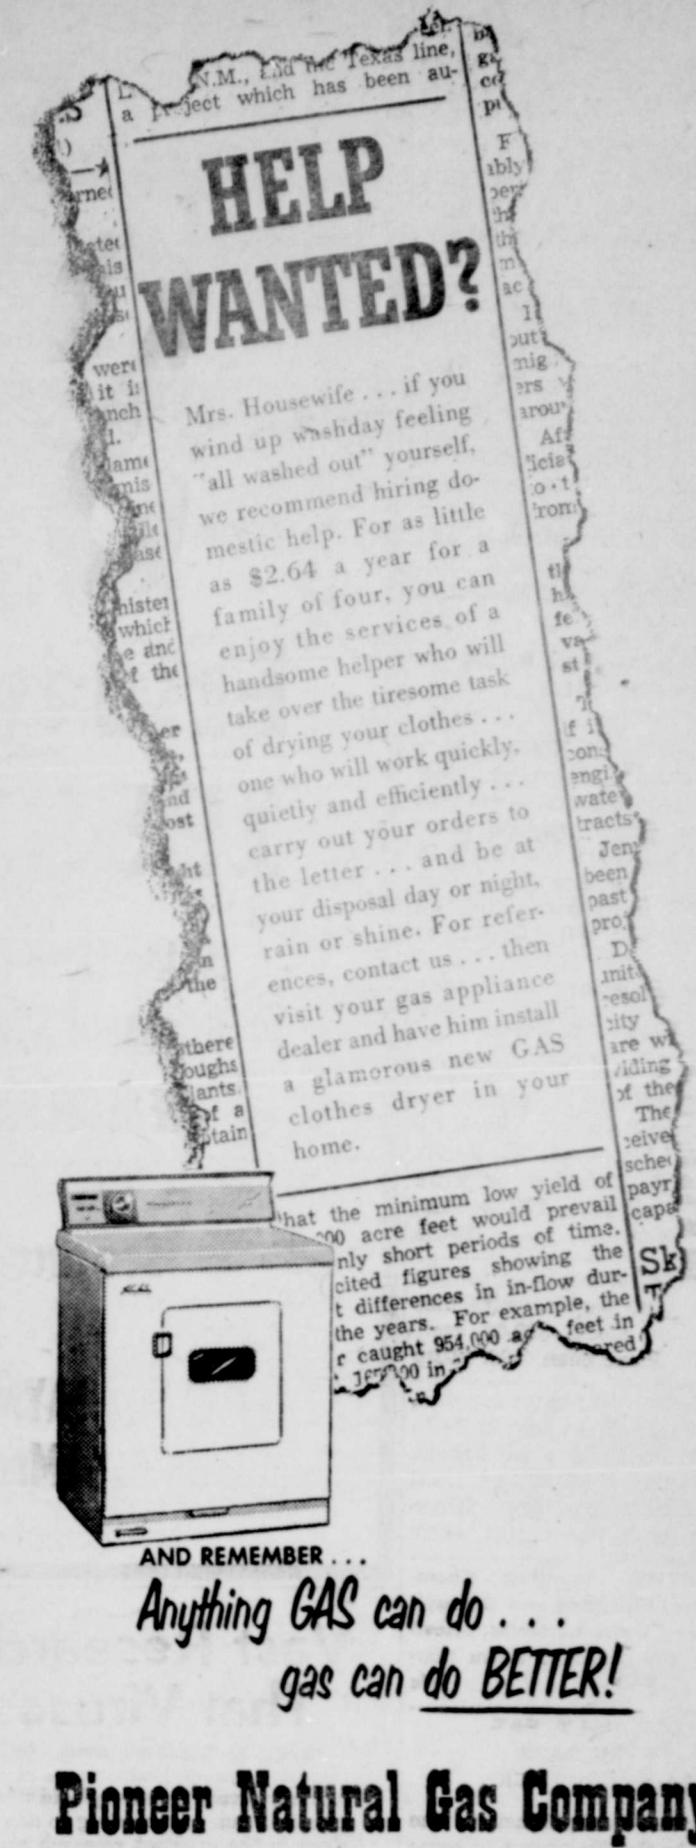 N.M., and the Texas line,
a project which has been au-
HELP
WANTED?
Mrs. Housewife . . . if you
wind up washday feeling
"all washed out" yourself,
we recommend hiring do-
mestic help. For as little
as $2.64 a year for a
family of four, you can
enjoy the services of a
handsome helper who will
take over the tiresome task
of drying your clothes . . .
one who will work quickly,
quietly and efficiently . . .
carry out your orders to
the letter . . . and be at
your disposal day or night,
rain or shine. For refer-
ences, contact us . . . then
visit your gas appliance
dealer and have him install
a glamorous new GAS
clothes dryer in your
home.
were
it
nch
which
the
the
there
oughs
lants.
of a
tain
F
ably
Af
from
wate
tracts
Jen
been
past
pro
D
unit
resol
city
are
viding
of the
The
ceive
sche
payr
capa
Sk
hat the minimum low yield of
000 acre feet would prevail
nly short periods of time.
cited figures showing the
t differences in in-flow dur-
the years. For example, the
r caught 954,000 feet in
in
AND REMEMBER . . .
Anything GAS can do . . .
gas can do BETTER!
Pioneer Natural Gas Company